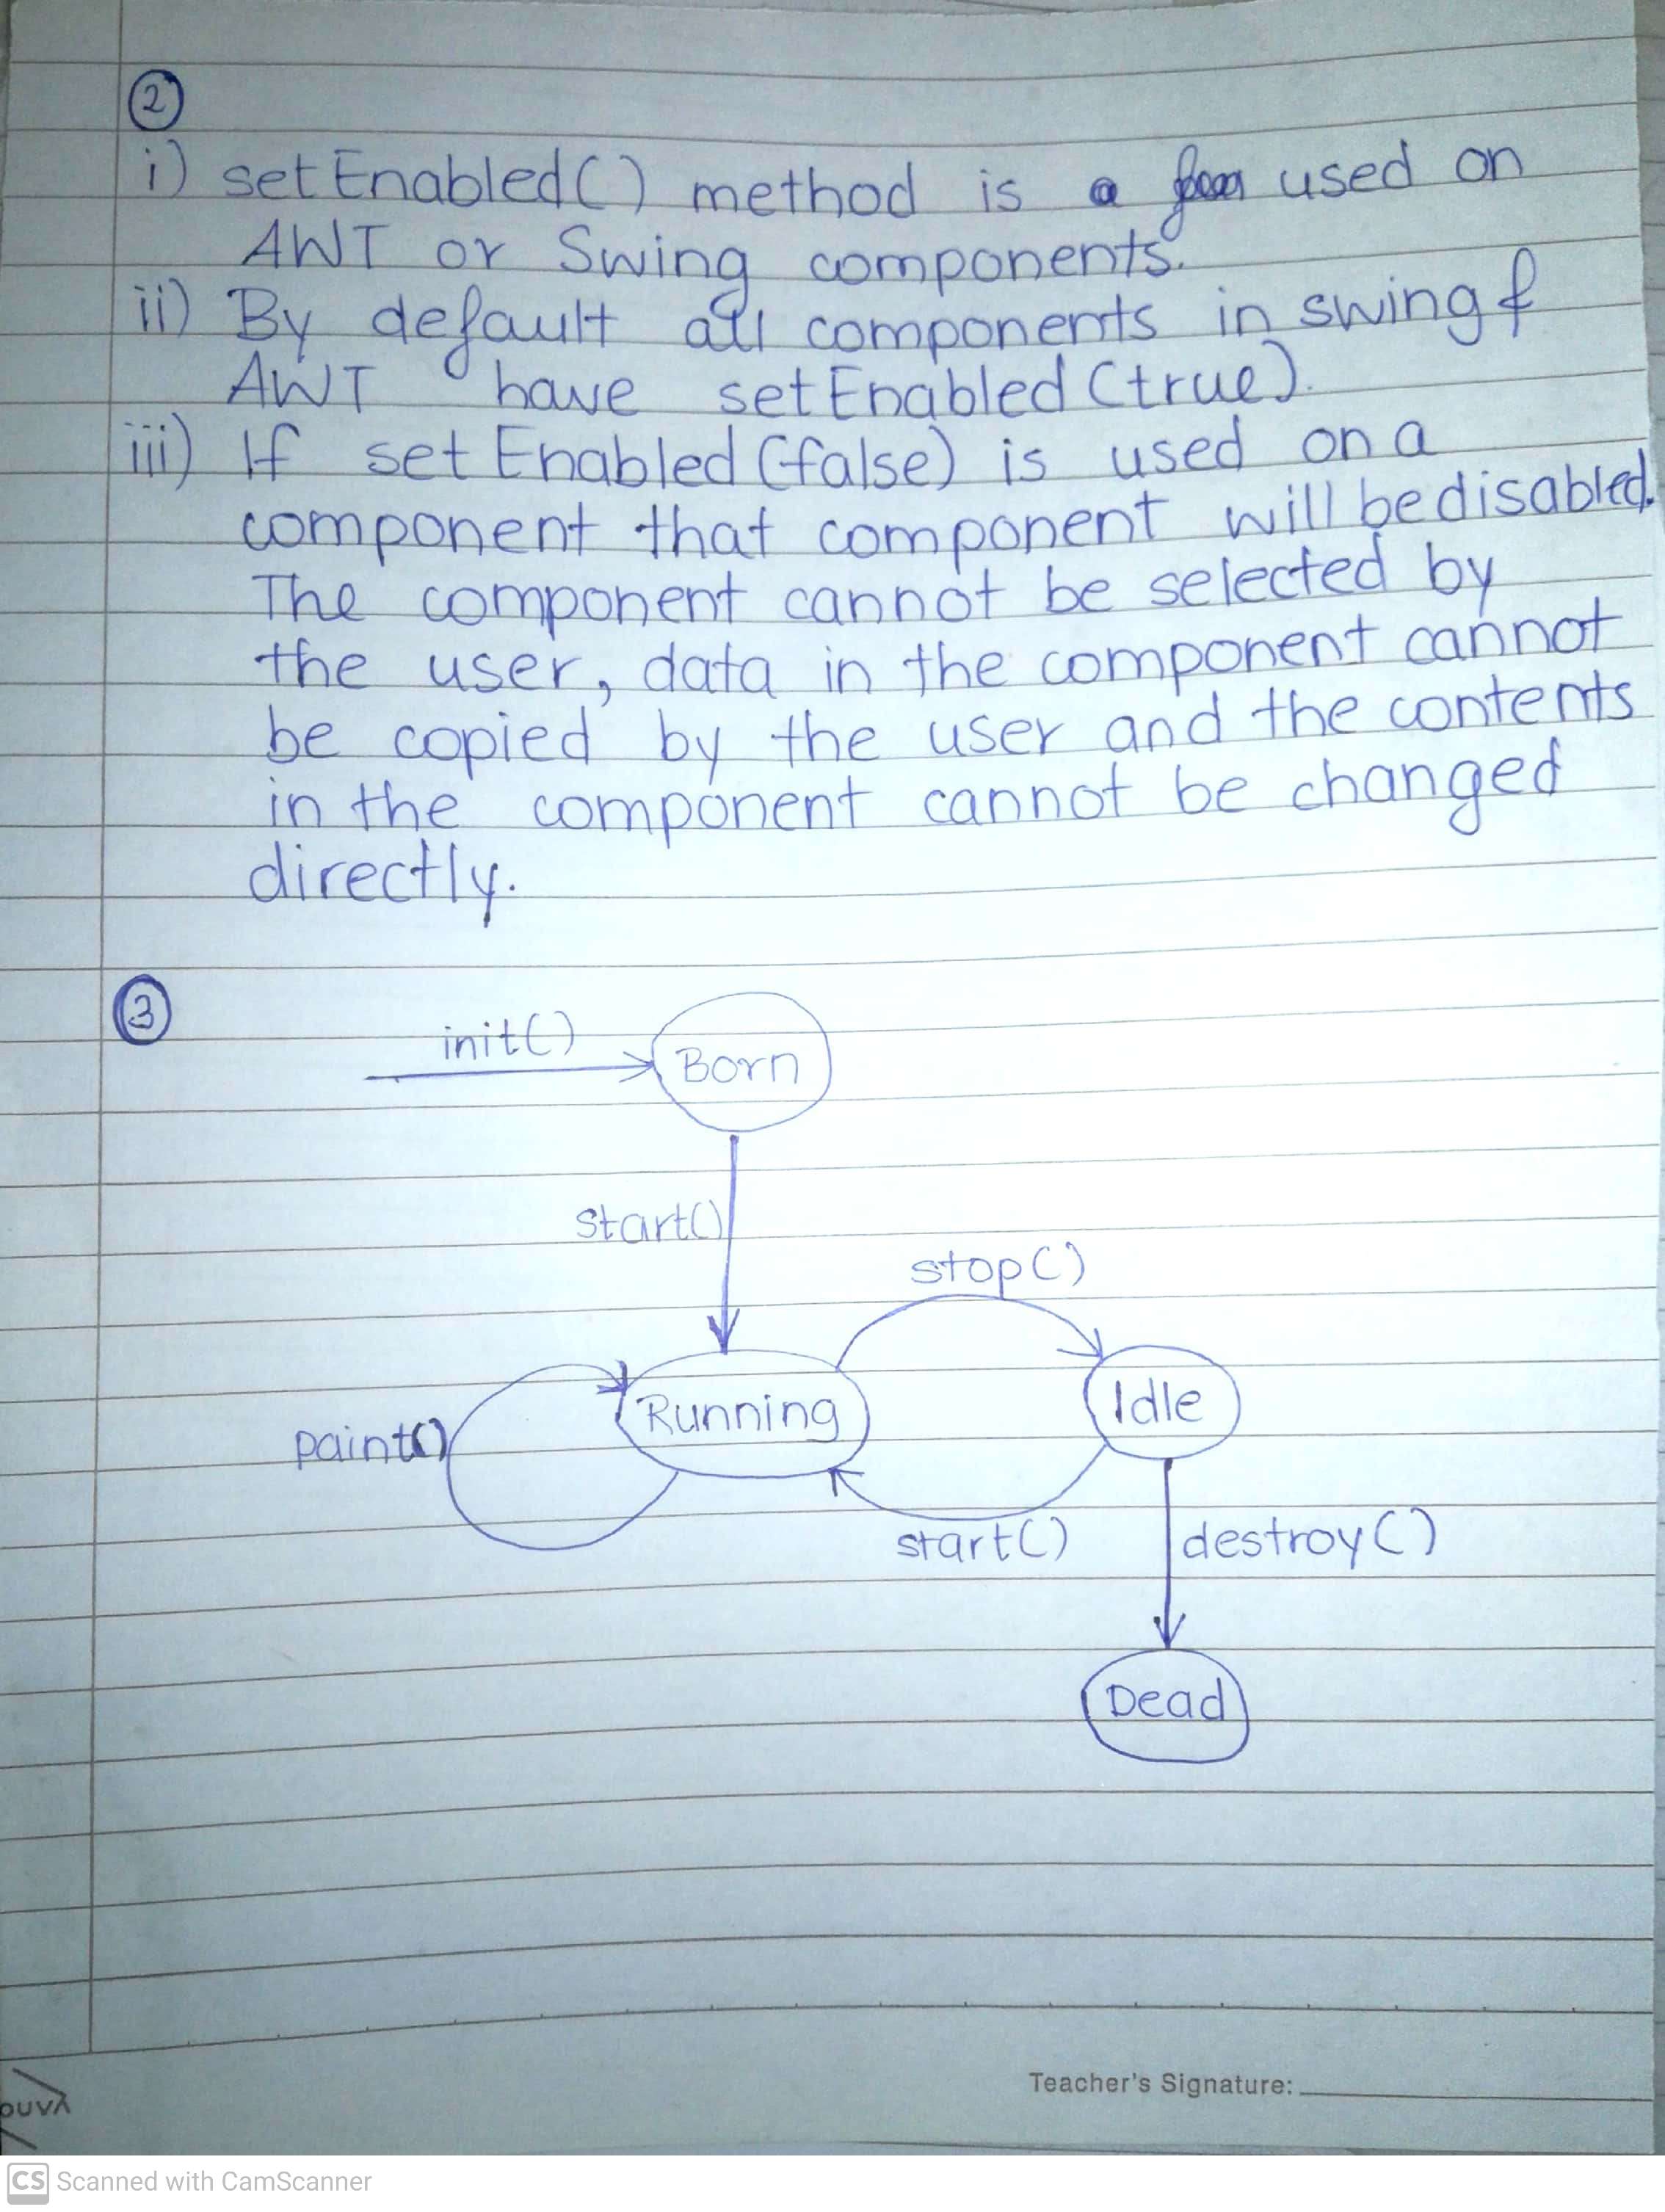 2
i) setEnabled() method is a used on
AWT or Swing components.
ii) By default all components in swing &
AWT have setEnabled (true).
iii) If setEnabled (false) is used on a
component that component will be disabled.
The component cannot be selected by
the user, data in the component cannot
be copied by the user and the contents
in the component cannot be changed
directly.
3
init()
Born
start()
stop()
Running
Idle
paint()
start()
destroy()
Dead
Teacher's Signature:
CS Scanned with CamScanner